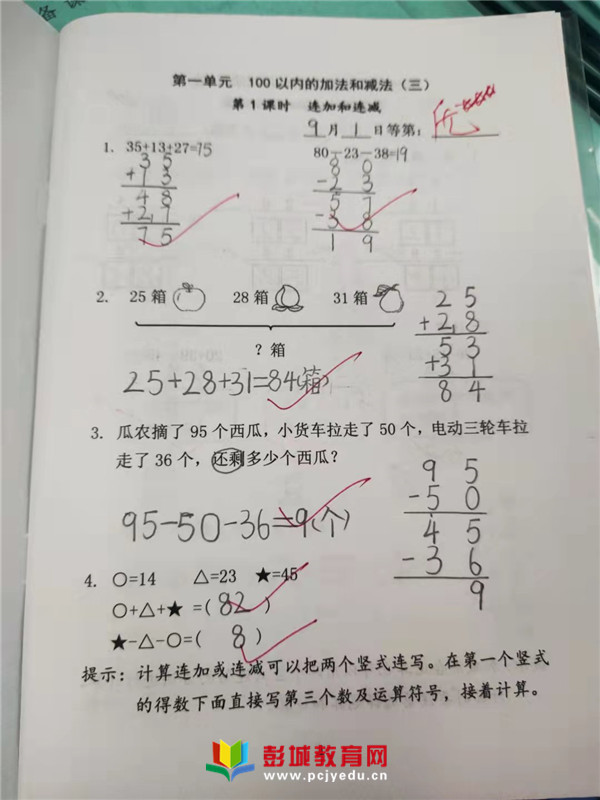 第一单元 100以内的加法和减法（三）
第1课时 连加和连减
9月1日等第：
1. 35+13+27=75
80－23－38=19
3 5
+ 1 3
4 8
+ 2 7
7 5
8 0
- 2 3
5 7
- 3 8
1 9
2. 25箱 28箱 31箱
？箱
25+28+31=84(箱)
2 5
+ 2 8
5 3
+ 3 1
8 4
3. 瓜农摘了95个西瓜，小货车拉走了50个，电动三轮车拉
走了36个，还剩多少个西瓜？
95-50-36=9(个)
9 5
- 5 0
4 5
- 3 6
9
4. ○=14 △=23 ★=45
○+△+★ =( 82 )
★-△-○=( 8 )
提示：计算连加或连减可以把两个竖式连写。在第一个竖式
的得数下面直接写第三个数及运算符号，接着计算。
彭城教育网
www.pcjyedu.cn